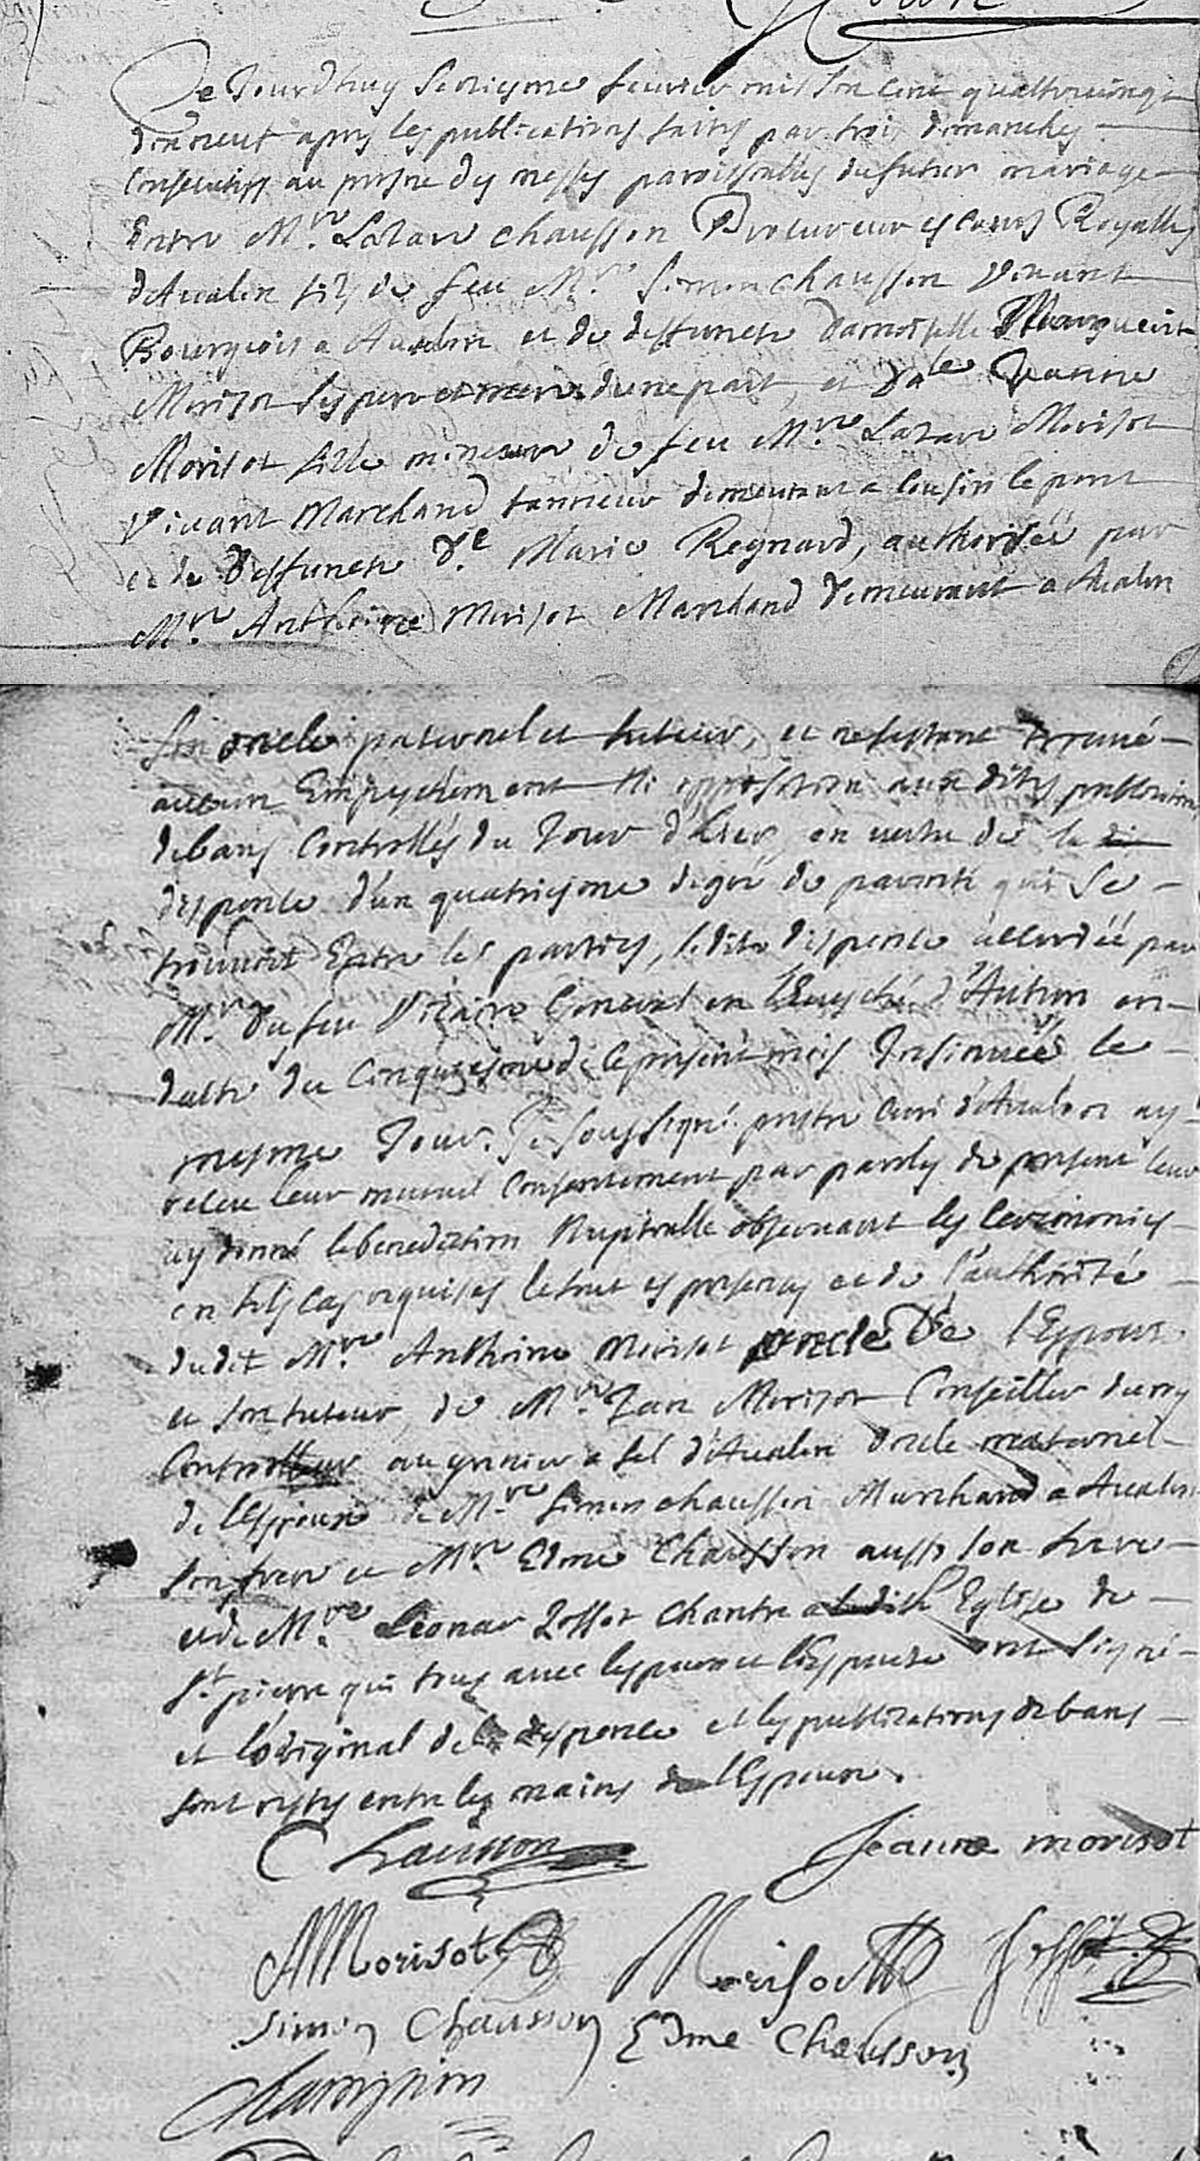 Ce Jourdhuy seziesme feuvrier mil six cent quattrevingt
dixneuf apres les publications faites par trois dimanches
consecutifs au prosne des messes paroissialles du futur mariage
Entre Mre. Lazare Chausson Procureur es cours Royalles
d'Avalon fils de feu Mre. Simon Chausson vivant
Bourgeois a Avalon et de deffuncte damoiselle Marguerite
Morisot ses pere et mere d'une part, et Dlle Jeanne
Morisot fille mineure de feu Mre. Lazare Morisot
vivant Marchand tanneur demeurant a Cousin le pont
et de deffuncte De. Marie Regnard, authorisée par
Mre. Anthoine Morisot Marchand demeurant a Avalon
son oncle paternel et tuteur, et ne s'estant trouvé
aucun Empeschement ni opposition aux dites publications
de bans controllés du Jour d'hier, en vertu de la
dispense d'un quatriesme degré de parenté qui se
trouvoit Entre les parties, ladite dispense accordée par
Mr. Dufeu Vicaire General en l'Evesché d'Autun en
datte du cinquiesme de ce present mois Insinuée le
mesme Jour. Je soussigné prestre curé d'Avalon ay
receu leur mutuel consentement par paroles de present leur
ay donné la benediction Nuptialle observant les ceremonies
en tels cas requises le tout es presences et de l'authorité
dudit Mre. Anthoine Morisot oncle De l'Espouse
et son tuteur, de Mre. Jean Morisot Conseiller du roy
Controlleur au grenier a sel d'Avalon oncle maternel
de l'Espoux de Mre. Simon Chausson Marchand a Avalon
son frere et Mre. Edme Chausson aussi son frere
et de Mre. Leonar chantre a ladite Eglise de
St. pierre qui tous avec l'espoux et l'Espouse ont signé
et l'original de la dispense et les publications de bans
sont restés entre les mains de l'Espoux.
Chausson Jeanne morisot
AMorisot Morisot
Simon Chausson Edme Chausson
Champion